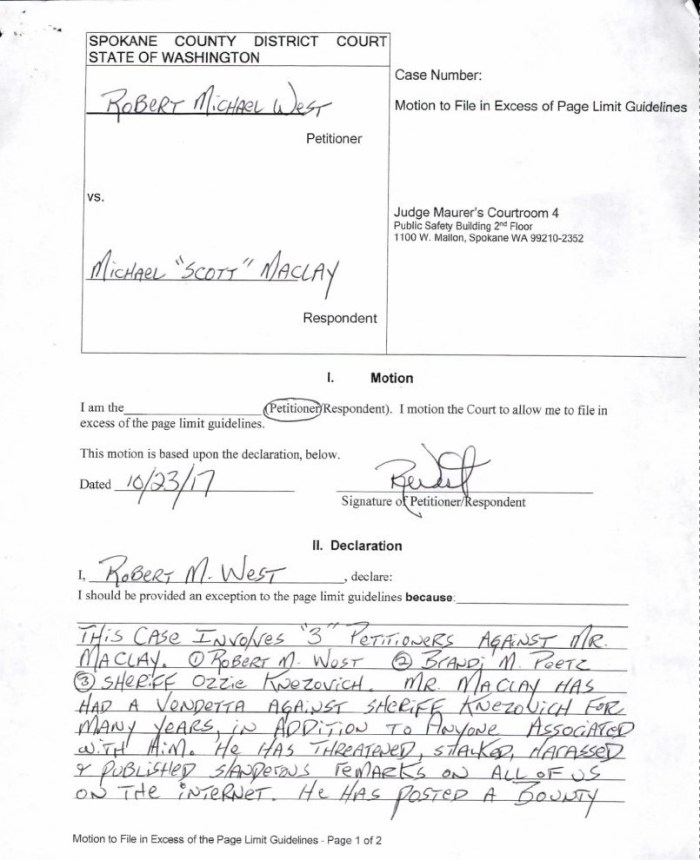 SPOKANE COUNTY DISTRICT COURT
STATE OF WASHINGTON
ROBERT MICHAEL WEST
Petitioner
vs.
MICHAEL "SCOTT" MACLAY
Respondent
Case Number:
Motion to File in Excess of Page Limit Guidelines
Judge Maurer's Courtroom 4
Public Safety Building 2nd Floor
1100 W. Mallon, Spokane WA 99210-2352
I. Motion
I am the____________________(Petitioner/Respondent). I motion the Court to allow me to file in
excess of the page limit guidelines.
This motion is based upon the declaration, below.
Dated 10/23/17
Signature of Petitioner/Respondent
II. Declaration
I, ROBERT M. WEST, declare:
I should be provided an exception to the page limit guidelines because:
THIS CASE INVOLVES "3" PETITIONERS AGAINST MR.
MACLAY. ① ROBERT M. WEST ② BRANDI M. POETZ
③ SHERIFF OZZIE KNEZOVICH. MR. MACLAY HAS
HAD A VENDETTA AGAINST SHERIFF KNEZOVICH FOR
MANY YEARS, IN ADDITION TO ANYONE ASSOCIATED
WITH HIM. HE HAS THREATENED, STALKED, HARASSED
& PUBLISHED SLANDEROUS REMARKS ON ALL OF US
ON THE INTERNET. HE HAS POSTED A BOUNTY
Motion to File in Excess of the Page Limit Guidelines - Page 1 of 2